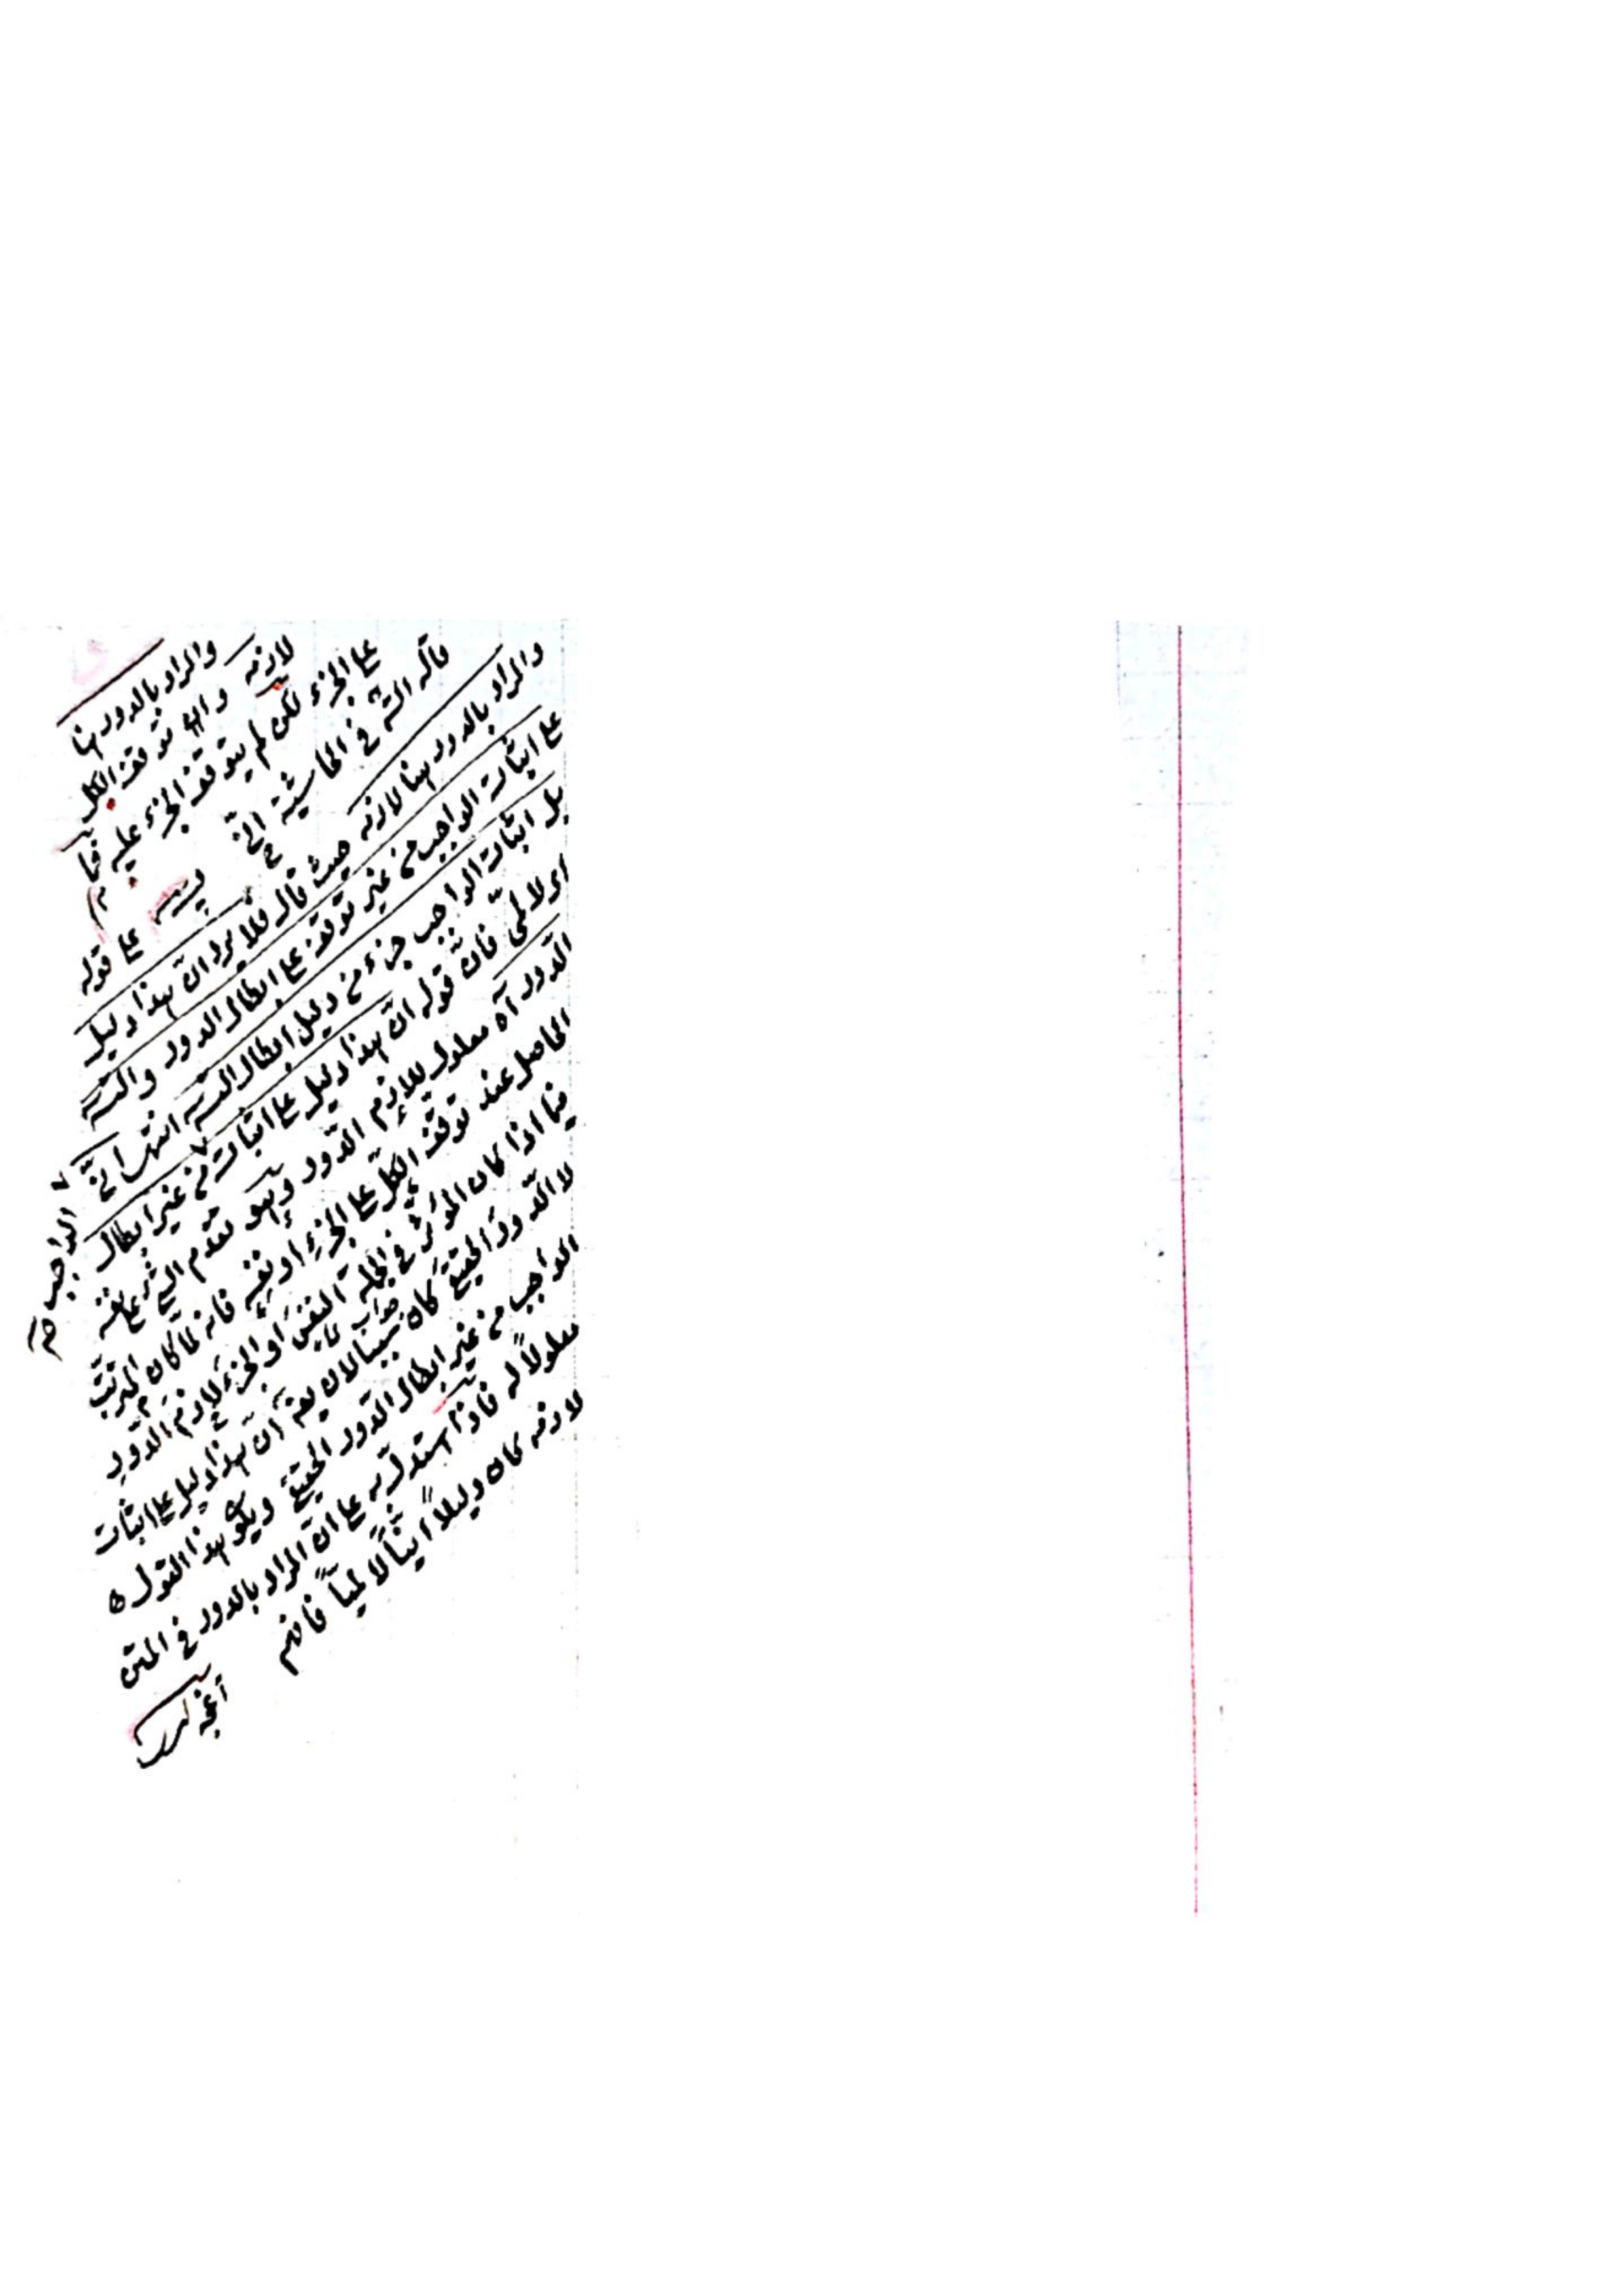 والمراد بالدور هنا
لازمه وان توقف الكل
على الجزء لكن لم يتوقف الجزء عليه
قال الش في الحاشية
على قوله
والمراد بالدور هنا لازمه حيث قال فلا يرد ان هذا دليل
على اثبات الواجب من غير توقف على ابطال الدور والتسـ
بل اثبات الواجب جزء من دليل ابطال التسـ انتهى
اى لا لمّى فانّ قوله انّ هذا دليل على اثبات الواجب من غير ابطال
الدور آه معلول للازم الدور وهو تقدم الشئ على نفسه
الحاصل عند توقف الكلّ على الجزءِ او نفسِه فانه لمّا كان المترتب
فيما اذا كان المؤثر فى الجملة النفسَ او الجزءَ لازمَ الدّور
لا الدورَ الحقيقى كان سببا لان يقـ انّ هذا دليل على اثبات
الواجب من غير ابطال الدور الحقيقى ويكون هذا القول
معلولاً له فاذا استدلّ به على انّ المراد بالدور فى المتن
لازمه كان دليلاً انّيّاً لا لمّيّاً فافهم